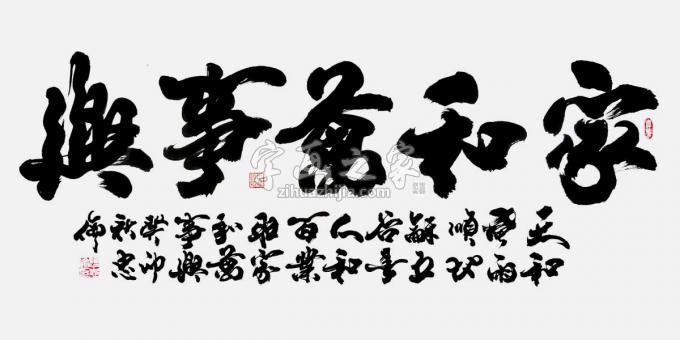 家和萬事興
天和
風雨
順地
穌五
谷丰
人和
百業
旺家
和萬
事興
癸卯
秋忠
偉
字画之家
zihuazhijia.com